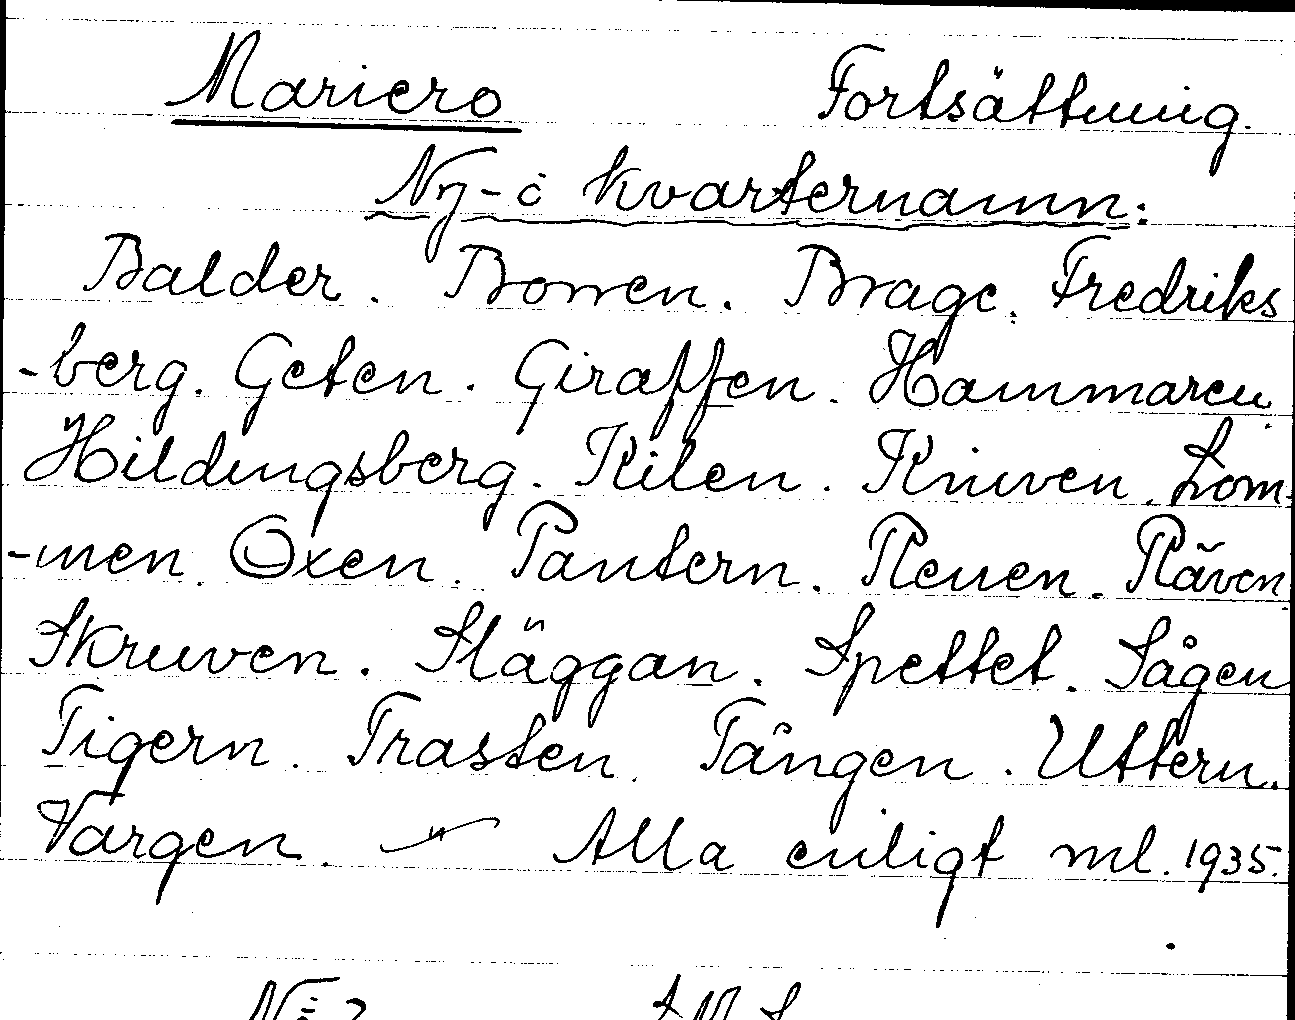 Mariero Fortsättning.
Ny-ö kvarternamn:
Balder. Borren. Brage. Fredriks
-berg. Geten. Giraffen. Hammaren.
Hildingsberg. Kilen. Kniven. Lom-
-men. Oxen. Pantern. Renen. Räven
Skruven. Släggan. Spettet. Sågen
Tigern. Trasten. Tången. Uttern.
Vargen. Alla enligt ml. 1935.